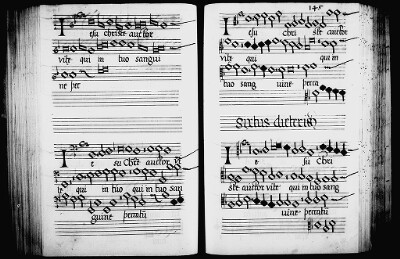 Iesu christe auctor
vite qui in tuo sangui
ne per
Ie su Christe auctor vi
te qui in tuo qui in tuo san
guine
145
Iesu chri ste auctor
vite qui qui in
tuo sang uine
Sixtus dietrich
Ie su Chri
ste auctor vite qui in tuo sang
uine